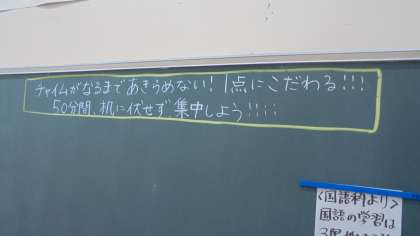 チャイムがなるまであきらめない！1点にこだわる！！！
50分間、机に伏せず集中しよう！！！！
〈国語科より〉
国語の学習は